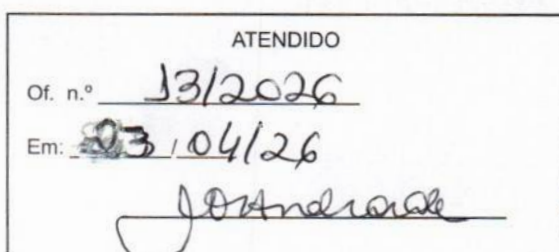 ATENDIDO
Of. n.º 13/2026
Em: 03/04/26